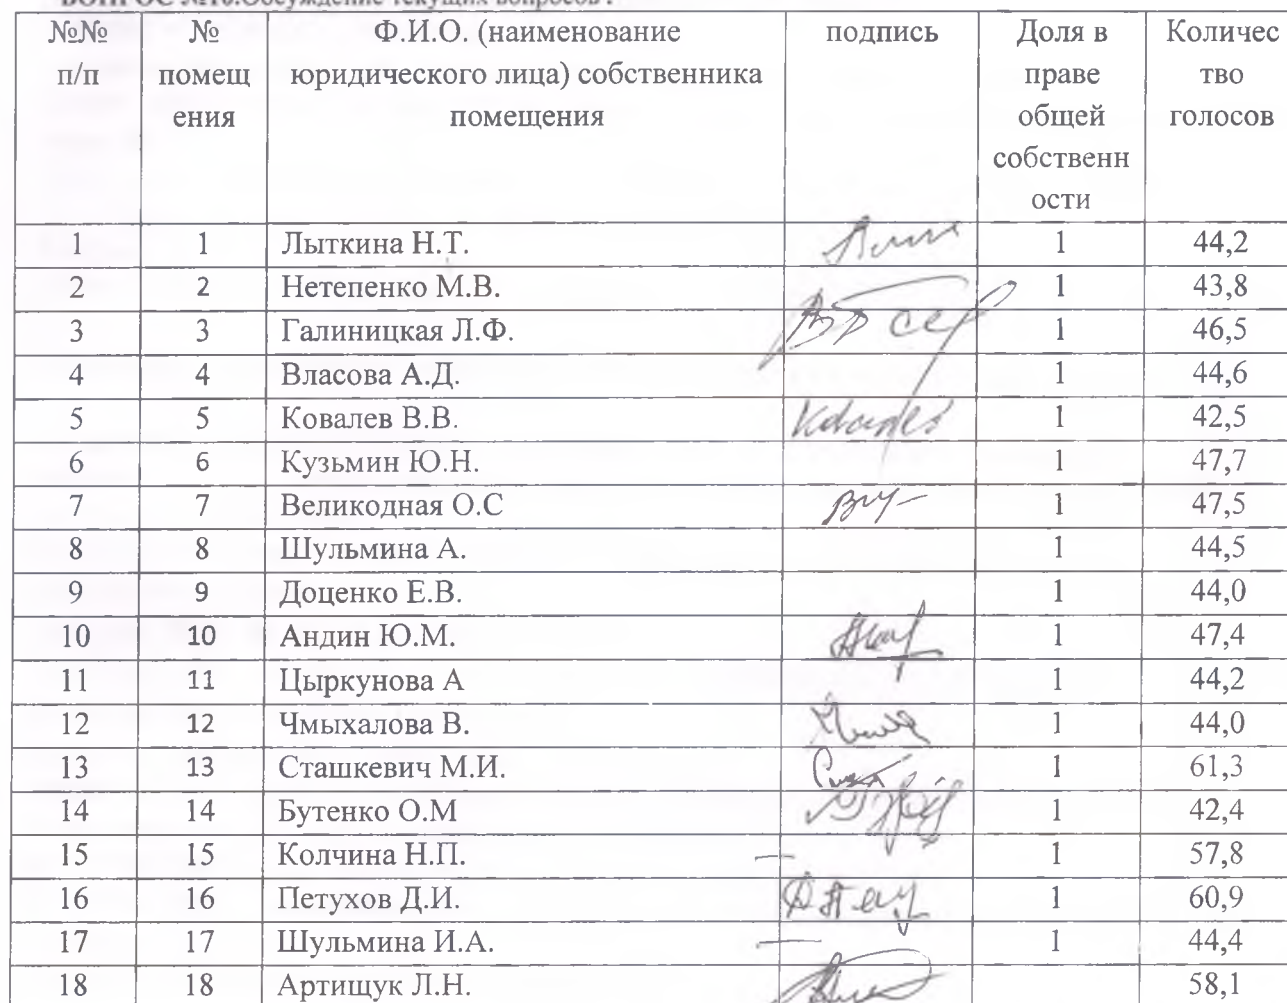 ВОПРОС №10.Обсуждение текущих вопросов .
№№ п/п № помещ ения Ф.И.О. (наименование юридического лица) собственника помещения подпись Доля в праве общей собственн ости Количес тво голосов
1 1 Лыткина Н.Т. 1 44,2
2 2 Нетепенко М.В. 1 43,8
3 3 Галиницкая Л.Ф. 1 46,5
4 4 Власова А.Д. 1 44,6
5 5 Ковалев В.В. 1 42,5
6 6 Кузьмин Ю.Н. 1 47,7
7 7 Великодная О.С 1 47,5
8 8 Шульмина А. 1 44,5
9 9 Доценко Е.В. 1 44,0
10 10 Андин Ю.М. 1 47,4
11 11 Цыркунова А 1 44,2
12 12 Чмыхалова В. 1 44,0
13 13 Сташкевич М.И. 1 61,3
14 14 Бутенко О.М 1 42,4
15 15 Колчина Н.П. 1 57,8
16 16 Петухов Д.И. 1 60,9
17 17 Шульмина И.А. 1 44,4
18 18 Артищук Л.Н. 58,1